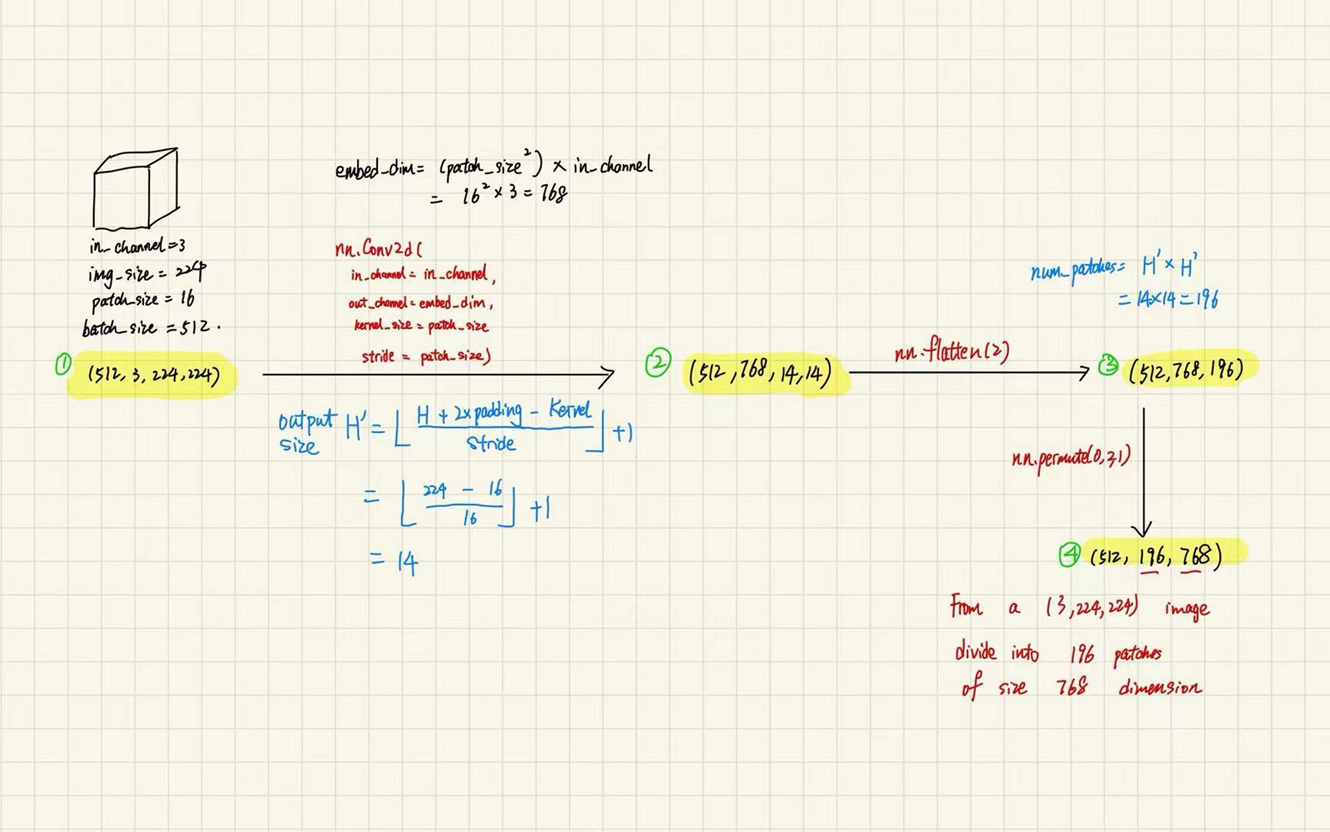 in_channel=3
img_size = 224
patch_size = 16
batch_size = 512.
① (512, 3, 224, 224)
embed_dim= (patch_size²) × in_channel
= 16² × 3 = 768
nn.Conv2d(
in_channel= in_channel,
out_channel= embed_dim,
kernel_size = patch_size
stride = patch_size)
output size H' = ⌊ (H + 2×padding - Kernel) / Stride ⌋ +1
= ⌊ (224 - 16) / 16 ⌋ +1
= 14
② (512, 768, 14, 14)
nn.flatten(2)
num_patches= H' × H'
= 14×14 = 196
③ (512, 768, 196)
nn.permute(0,2,1)
④ (512, 196, 768)
From a (3, 224, 224) image
divide into 196 patches
of size 768 dimension